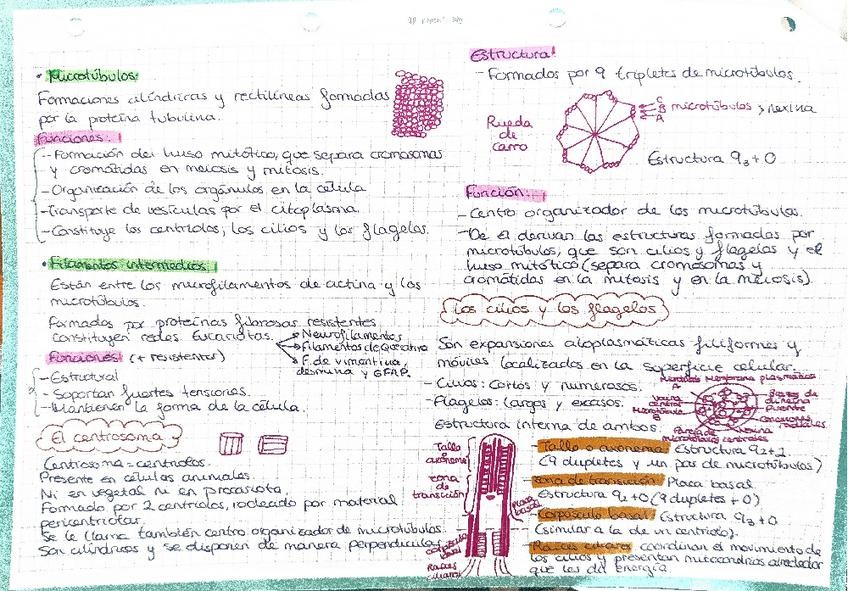 · Microtúbulos:
Formaciones cilíndricas y rectilíneas formadas
por la proteína tubulina.
Funciones:
- Formación del huso mitótico, que separa cromosomas
y cromátidas en meiosis y mitosis.
- Organización de los orgánulos en la célula
- Transporte de vesículas por el citoplasma.
- Constituye los centriolos, los cilios y los flagelos.
· Filamentos intermedios:
Están entre los microfilamentos de actina y los
microtúbulos.
Formados por proteínas fibrosas resistentes
constituyen redes. Eucariotas.
Neurofilamentos
Filamentos de Queratina
F. de vimentina,
desmina y GFAP.
Funciones: (+ resistentes)
- Estructural
- Soportan fuertes tensiones.
- Mantienen la forma de la célula.
El centrosoma
Centrosoma = centriolos.
Presente en células animales.
Ni en vegetal ni en procariota
Formado por 2 centriolos, rodeado por material
pericentriolar.
Se le llama también centro organizador de microtúbulos.
Son cilíndricos y se disponen de manera perpendicular
Estructura:
- Formados por 9 tripletes de microtúbulos.
Rueda
de
Carro
C
B
A
microtúbulos > nexina
Estructura 9₃+0
Función:
- Centro organizador de los microtúbulos.
- De él derivan las estructuras formadas por
microtúbulos, que son cilios y flagelos y el
huso mitótico (separa cromosomas y
cromátidas en la mitosis y en la meiosis).
Los cilios y los flagelos
Son expansiones citoplasmáticas filiformes y
móviles localizados en la superficie celular.
- Cilios: cortos y numerosos.
- Flagelos: largos y escasos.
Estructura interna de ambos.
Membrana plasmática
Vaina
central
Microtúbulo
B
Brazos de
dineína
Puente
conexiones
radiales
microtúbulos centrales
Tallo
o
axonema
zona de
transición
Placa
basal
corpúsculo
basal
Raíces
ciliares
Tallo o axonema: Estructura 9₂+2
(9 dupletes y un par de microtúbulos)
zona de transición: Placa basal
Estructura 9₂+0 (9 dupletes + 0)
Corpúsculo basal: Estructura 9₃+0
(similar a la de un centriolo).
Raíces ciliares: coordinan el movimiento de
los cilios y presentan mitocondrias alrededor
que les da energía.